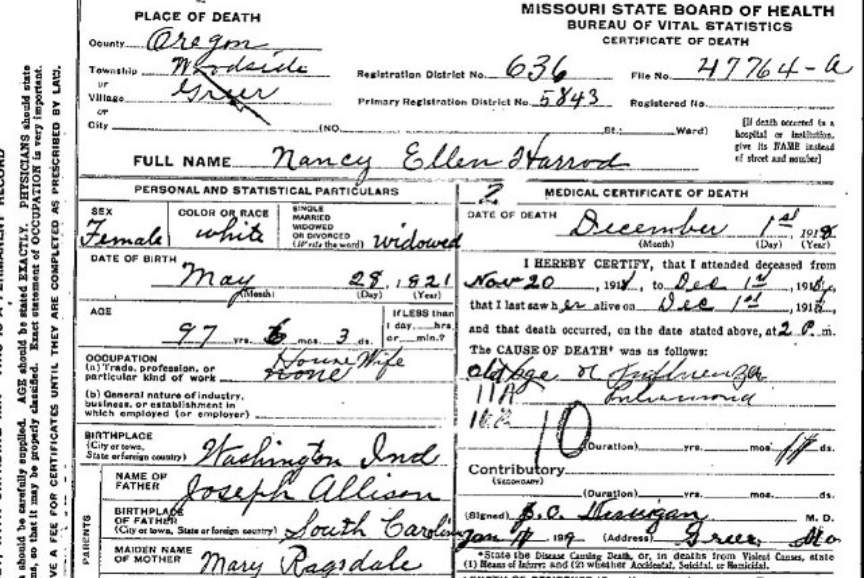 PLACE OF DEATH
MISSOURI STATE BOARD OF HEALTH
BUREAU OF VITAL STATISTICS
CERTIFICATE OF DEATH
County Oregon
Township Woodside
or
Village Greer
or
City (NO. St.; Ward)
Registration District No. 636 File No. 47764-A
Primary Registration District No. 5843 Registered No.
[If death occurred in a
hospital or institution,
give its NAME instead
of street and number]
FULL NAME Nancy Ellen Harrod
PERSONAL AND STATISTICAL PARTICULARS
SEX
Female
COLOR OR RACE
white
SINGLE
MARRIED
WIDOWED
OR DIVORCED
(Write the word) widowed
DATE OF BIRTH
May 28, 1821
(Month) (Day) (Year)
AGE
97 yrs. 6 mos. 3 ds.
If LESS than
1 day, hrs.
or min.?
OCCUPATION
(a) Trade, profession, or
particular kind of work House Wife
none
(b) General nature of industry,
business, or establishment in
which employed (or employer)
BIRTHPLACE
(City or town,
State or foreign country) Washington Ind
PARENTS
NAME OF
FATHER Joseph Allison
BIRTHPLACE
OF FATHER
(City or town, State or foreign country) South Carolin
MAIDEN NAME
OF MOTHER Mary Ragsdale
2 MEDICAL CERTIFICATE OF DEATH
DATE OF DEATH December 1st, 1918
(Month) (Day) (Year)
I HEREBY CERTIFY, that I attended deceased from
Nov 20, 1918, to Dec 1st, 1918,
that I last saw her alive on Dec 1st, 1918,
and that death occurred, on the date stated above, at 2 P. m.
The CAUSE OF DEATH* was as follows:
old age Influenza
11A
10
(Duration) yrs. mos. ds.
Contributory
(SECONDARY)
(Duration) yrs. mos. ds.
(Signed) M. D.
Jan 191 (Address) Greer Mo
*State the Disease Causing Death, or, in deaths from Violent Causes, state
(1) Means of Injury; and (2) whether Accidental, Suicidal, or Homicidal.
should be carefully supplied. AGE should be stated EXACTLY. PHYSICIANS should state
so that it may be properly classified. Exact statement of OCCUPATION is very important.
A FEE FOR CERTIFICATES UNTIL THEY ARE COMPLETED AS PRESCRIBED BY LAW.